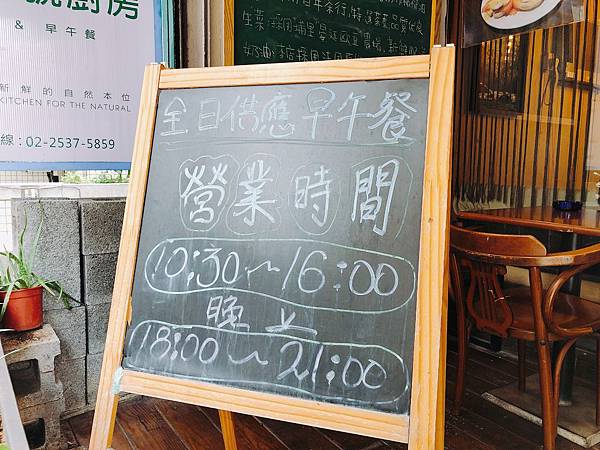 號廚房
& 早午餐
新鮮的自然本位
KITCHEN FOR THE NATURAL
線：02-2537-5859
全日供應早午餐
營業時間
10:30～16:00
晚上
18:00～21:00